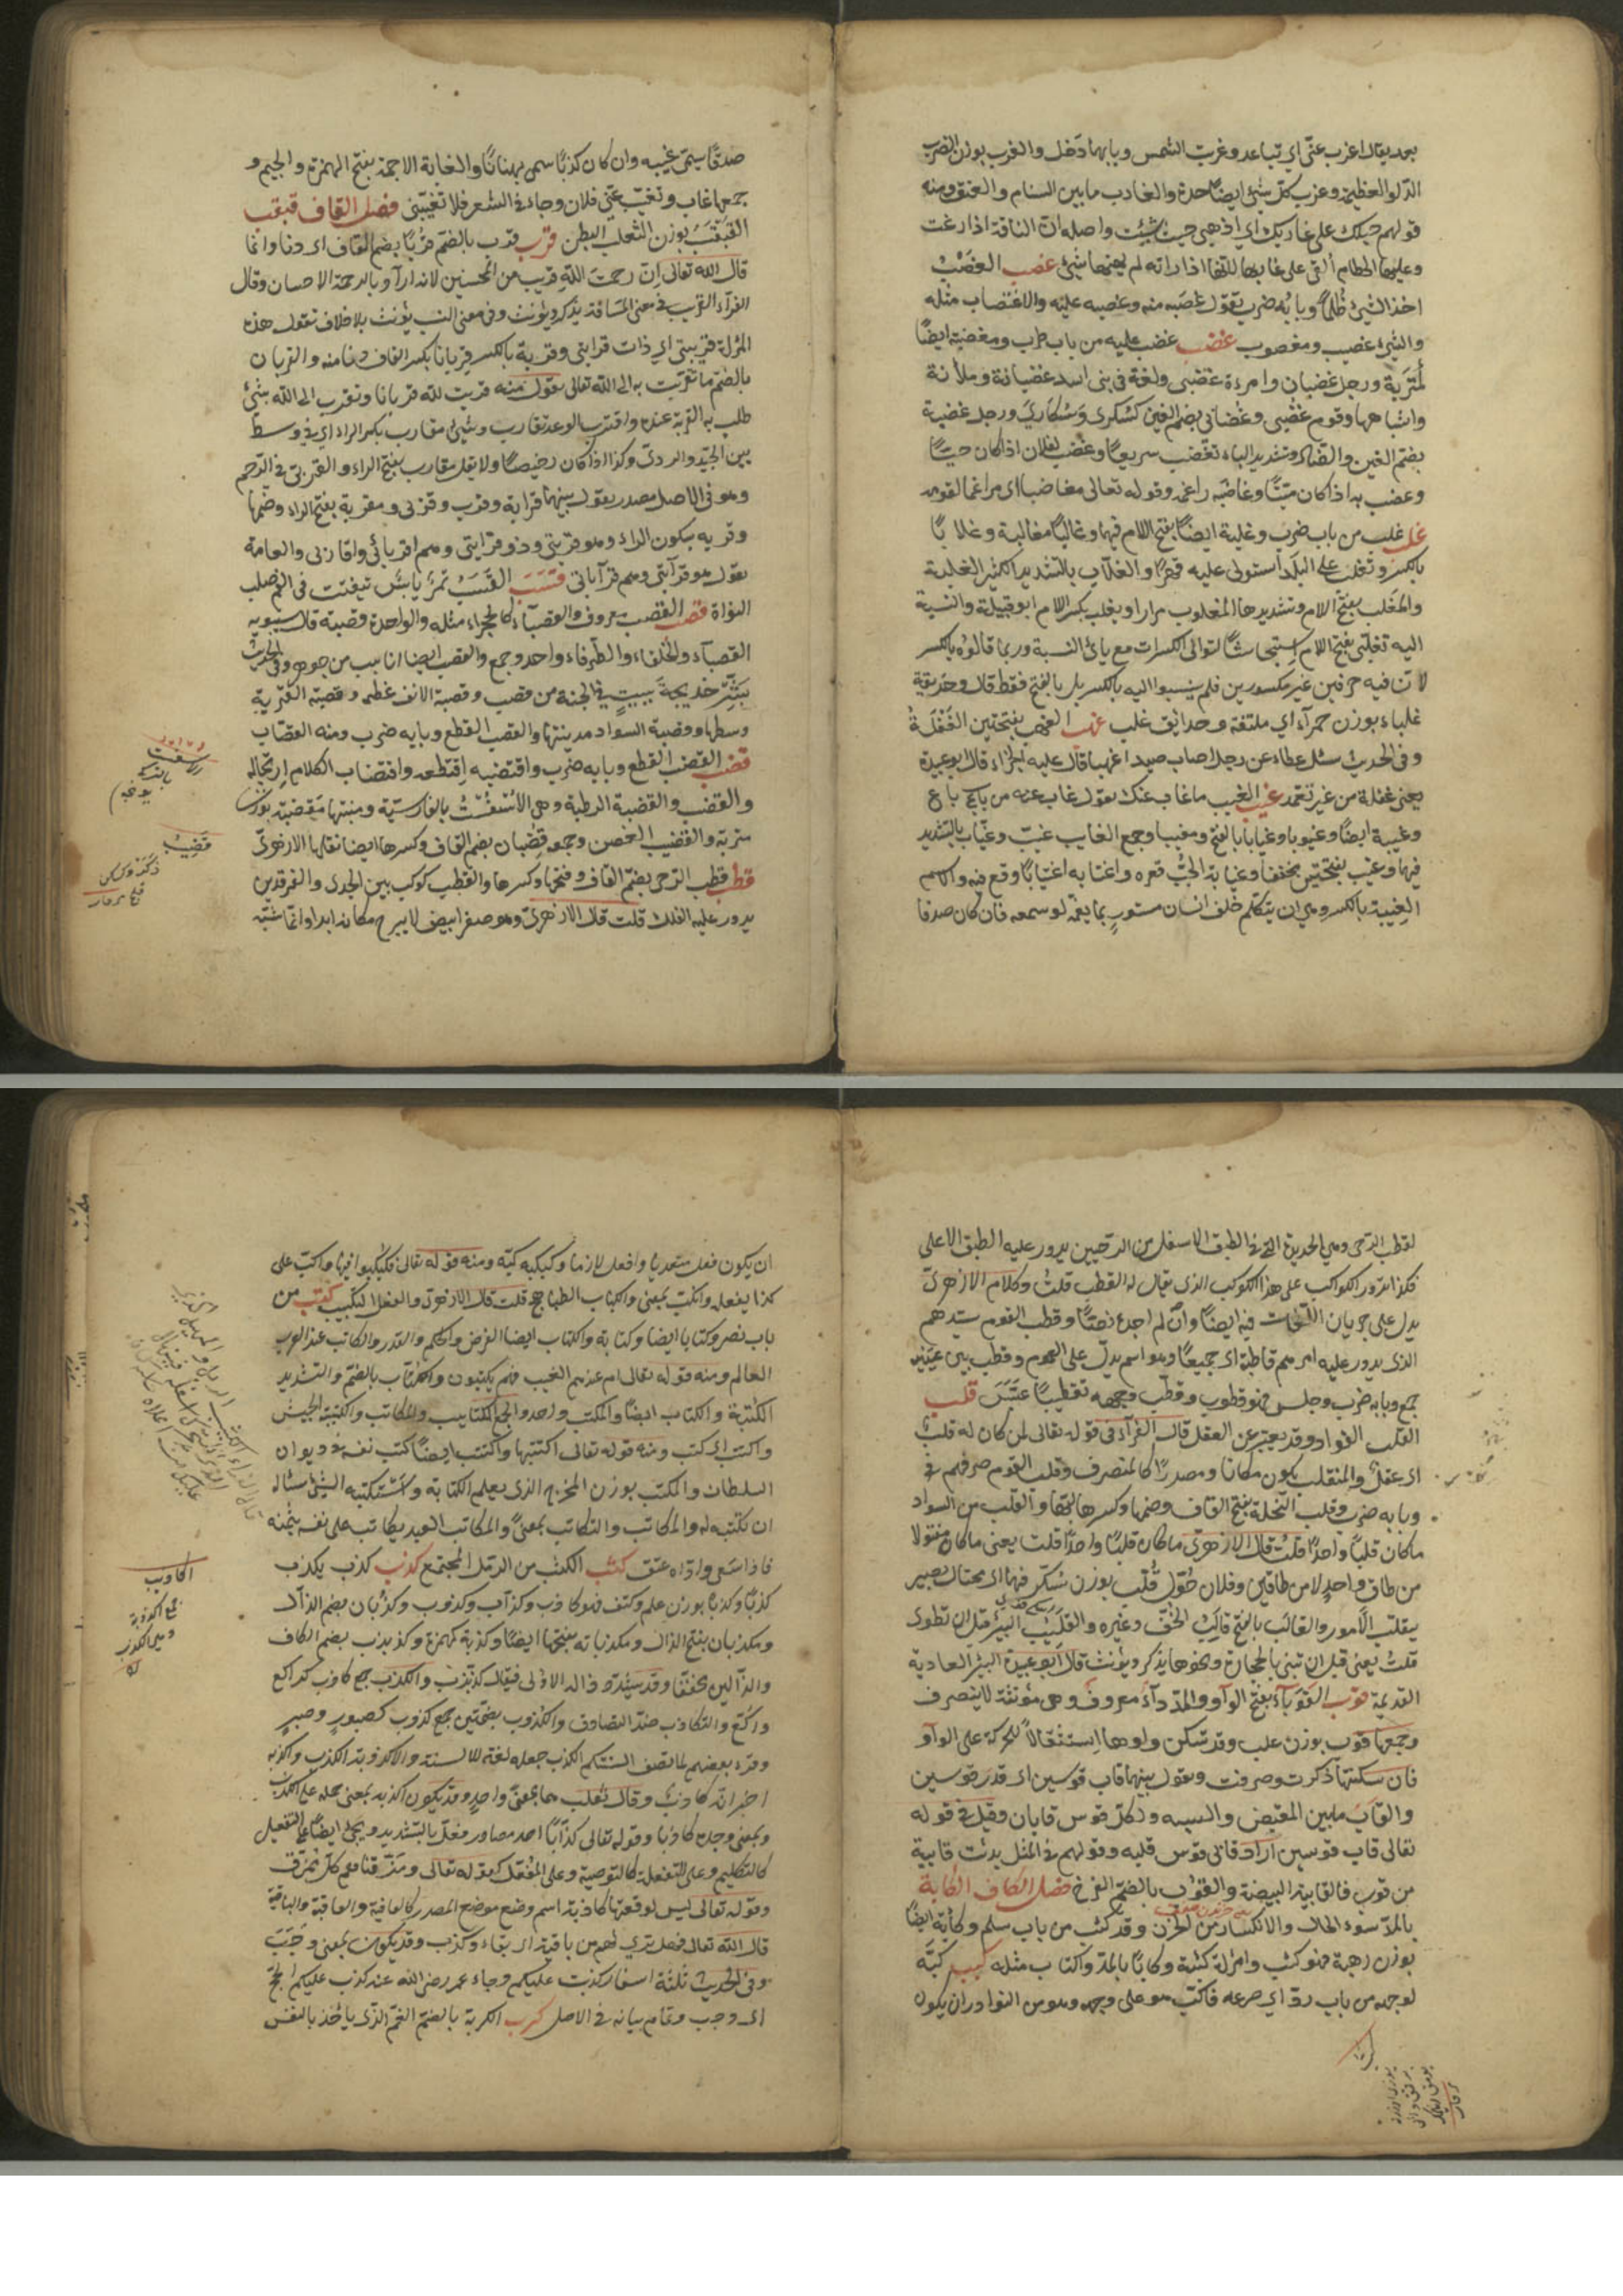 بعد يقال اعزب عنّي اي تباعد وغربت الشمس وبابهما دخل والغرب بوزن الضرب
الدلو العظيمة وغرب كل شيئ ايضًا حده والغارب ما بين السنام والعنق ومنه
قولهم حبلك على غاربك اي اذهبي حيث شيئت واصله انّ الناقة اذا رعت
وعليها الخطام القى على غاربها لانها اذا راته لم يهنها شيئ غصب الغصْبُ
اخذ الشيئ ظلمًا وبابُه ضرب يقول غصَبه منه وغصبه عليه والاغتصاب مثله
والشيئ غصيب ومغصوب غضب غضب عليه من باب طرب ومغضبة ايضًا
كمَتْرَبة ورجل غضبان وامرءة غضبى ولغة في بنى اسد غضبانة وملأنة
واشباههما وقوم غضْبى وغُضابى بضم الغين كسَكرى وسُكارى ورجل غضبة
بضم الغين والضاد وتشديد الباء تغضب سريعًا وغضب لفلان اذا كان حيًّا
وغضب به اذا كان ميّتًا وغاضبه راغمه وقوله تعالى مغاضبا اى مراغما لقومه
غلب غلب من باب ضرب وغلبة ايضًا بفتح اللام فيهما وغالبًا مغالبة وغلابًا
بالكسر وتغلب على البلد استولى عليه قهرًا والغلّاب بالتشديد الكثير الغلبة
والمغلّب بفتح اللام وتشديدها المغلوب مرارا وتغلب بكسر اللام ابو قبيلة والنسبة
اليه تغلبى بفتح اللام استيحاشًا لتوالى الكسرات مع يائى النسبة وربما قالوه بالكسر
لانّ فيه حرفين غير مكسورين فلم ينسبوا اليه بالكسر بل بالفتح فقط قلت وحديقة
غلباء بوزن حمرآء اي ملتفة وحدائق غلب غهب الغهب بفتحتين الغَفْلَةُ
وفى الحديث سئل عطاء عن رجل اصاب صيدا غهبا قال عليه الجزاء قال ابو عبيدة
يعنى غفلة من غير تعمد غيب الغيب ما غاب عنك يقول غاب عنه من باب باع
وغيبة ايضًا وغيوبا وغيابا بالفتح ومغيبا وجمع الغايب غيب وغيّاب بالتشديد
فيهما وغيب بفتحتين مخففا وغيابة الجبّ قعره واغتابه اغتيابًا وقع فيه والاسم
الغيبة بالكسر وهي ان يتكلم خلف انسان مستورٍ بما يغمّه لو سمعه فان كان صدقا
صدقًا سمّى غيبة وان كان كذبًا سمى بهتانًا والغابة الاجمة بفتح الهمزة والجيم و
جمعها غاب وتغيّب عنّى فلان وجاء في الشعر فلا تغيّبنى فصل القاف قبقب
القَبْقَبُ بوزن الثعلب البطن قرب قرب بالضم قربًا بضم القاف اى دنا وانما
قال الله تعالى انّ رحمت الله قريب من المحسنين لانه اراد بالرحمة الاحسان وقال
الفرآء القريب في معنى المسافة يذكر ويؤنث وفى معنى النسب يؤنث بلا خلاف تقول هذه
المرأة قريبتى اي ذات قرابتى وقربه بالكسر قربانا بكسر القاف دنا منه والقربان
بالضم ما تقربت به الى الله تعالى يقول منه قربت لله قربانا وتقرب الى الله بشئ
طلب به القربة عنده واقترب الوعد تقارب وشيئ مقارب بكسر الراء اي في وسط
بين الجيّد والردى وكذا اذا كان رخيصًا ولا يقل مقارب بفتح الراء والقربى في الرحم
وهو فى الاصل مصدر يقول بينهما قرابة وقرب وقربى ومقربة بفتح الراء وضمها
وقربه بسكون الراء وهو قريبى وذو قرابتى وهم اقربائى واقاربى والعامة
يقول هو قرابتى وهم قراباتى قَسَبَ القَسْبُ تمرٌ يابسٌ تتفتت فى الفم صلب
النواة قصب القصب معروف والقصبآء كالحمراء مثله والواحدة قصبة قال سيبويه
القصبآء والحلفاء والطرفاء واحد وجمع والقصب ايضا انابيب من جوهر وفى الحديث
بَشِّرْ خديجةَ ببيتٍ في الجنة من قصب وقصبة الانف عظمه وقصبة القرية
وسطها وقصبة السواد مدينتها والقصب القطع وبابه ضرب ومنه القصّاب
قضب القضب القطع وبابه ضرب واقتضبه اقتطعه واقتضاب الكلام ارتجاله
والقضب والقضبة الرطبة وهى الاسْفَسْتُ بالفارسيّة ومنبتها مَقضبة بوزن
متربة والقضيب الغصن وجمعه قضبان بضم القاف وكسرها ايضا نقلها الازهرى
قطب قطب الرحى بضم القاف وفتحها وكسرها والقطب كوكب بين الجدى والفرقدين
يدور عليه الفلك قلت قال الازهرى وهو صغير ابيض لا يبرح مكانه ابدا وانما شبّه
قَضِيبُ
لقطب الرحى وهي الحديدة التي في الطبق الاسفل من الرحيين يدور عليه الطبق الاعلى
فكذا تدور الكواكب على هذا الكوكب الذى يقال له القطب قلتُ وكلام الازهرى
يدل على جريان اللغات فيه ايضًا وان لم اجده نصًّا وقطب القوم سيّدهم
الذى يدور عليه امرهم قاطبة اى جميعًا وهو اسم يدل على العموم وقطب بين عينيه
جمع وبابه ضرب وجلس فهو قطوب وقطّب وجهه تقطيبًا عَبَّسَ قلب
القلب الفؤاد وقد يعبر عن العقل قال الفرآء فى قوله تعالى لمن كان له قلب
اى عقل والمنقلب يكون مكانا ومصدرًا كالمنصرف وقلب القوم صرفهم
وبابه ضرب وقلب النخلة بفتح القاف وضمها وكسرها لبّها والقلب من السوار
ما كان قلبًا واحدًا قلت قال الازهرى ما كان قلبًا واحدًا قلت يعنى ما كان مفتولا
من طاق واحدٍ لا من طاقين وفلان حوّل قُلّب بوزن سُكّر فيهما اى محتال بصير
بتقلب الامور والقالب بالفتح قالب الخفّ وغيره والقليب البئر قبل ان تطوى
قلتُ يعنى قبل ان تبنى بالحجارة ونحوها يذكر ويؤنث قال ابو عبيدة البئر العادية
القديمة قوب القُوَبآء بفتح الوآو والمدّ دآء معروف وهى مؤنثة لا ينصرف
وجمعها قوب بوزن علب وقد تسكن واوها استثقالاً للحركة على الوآو
فان سكنتها ذكرت وصرفت ويقول بينهما قاب قوسين اى قدر قوسين
والقاب ما بين المقبض والسيه ولكل قوس قابان وقيل فى قوله
تعالى قاب قوسين اراد قابى قوس فقلبه وقولهم في المثل برئت قابية
من قوب فالقابية البيضة والقوب بالضم الفرخ فصل الكاف الكآبة
بالمدّ سوء الحال والانكسار من الحزن وقد كئب من باب سلم وكأبة ايضًا
بوزن رهبة فهو كئب وامرأة كئبة وكآبًا بالمدّ واكتاب مثله كبب كبَّه
لوجهه من باب ردّ اي صرعه فاكبّ هو على وجهه وهو من النوادر ان يكون
ان يكون فعل متعديا وافعل لازما وكبكبه كبّه ومنه قوله تعالى فكبكبوا فيها واكبّ على
كذا يفعله وانكبّ بمعنى والكباب الطباهج قلت قال الازهرى والفعل التكبيب كتب من
باب نصر وكتابا ايضا وكتابة والكتاب ايضا الفرض والحكم والقدر والكاتب عند العرب
العالم ومنه قوله تعالى ام عندهم الغيب فهم يكتبون والكتّاب بالضم والتشديد
الكتبة والكتاب ايضًا والمكتب واحد والجمع الكتاتيب والمكاتب والكتيبة الجيش
واكتتب اى كتب ومنه قوله تعالى اكتتبها واكتتب ايضًا كتب نفسه في ديوان
السلطان والمكتب بوزن المخرج الذى يعلم الكتابة واسْتكتبه الشيئ سئاله
ان يكتبه له والمكاتب والتكاتب بمعنًى والمكاتب العبد يكاتب على نفسه بثمنه
فاذا سعى وادّاه عتق كثب الكثب من الرمل المجتمع كذب كذب يكذب
كذبًا وكذبا بوزن علم وكتف فهو كاذب وكذّاب وكذوب وكذُبان بضم الذال
ومكذبان بفتح الذال ومكذبانه بفتحها ايضًا وكذبة كهمزة وكذبذب بضم الكاف
والذالين مخففا وقد يشدد ذاله الاولى فيقال كذّبذب والكذّب جمع كاذب كراكع
وركّع والتكاذب ضدّ التصادق والكذوب بضمتين جمع كذوب كصبورٍ وصبرٍ
وقرء بعضهم لما تصف السنتكم الكذب جعله لغة للالسنة والاكذوبة الكذب واكذبه
اخبر انّه كاذبٌ وقال ثعلب هما بمعنًى واحدٍ وقد يكون اكذبه بمعنى حمله على الكذب
وبمعنى وجده كاذبا وقوله تعالى كذّابًا احد مصادر فعّل بالتشديد ويجئ ايضًا على التفعيل
كالتكليم وعلى التفعلة كالتوصية وعلى المفعّل كقوله تعالى ومزّقناهم كلّ ممزّق
وقوله تعالى ليس لوقعتها كاذبة اسم وضع موضع المصدر كالعافية والعاقبة والباقية
قال الله تعالى فهل ترى لهم من باقية اى بقاء وكذب وقد يكون بمعنى وَجَبَ
وفى الحديث ثلثة اسفار كذبت عليكم وجاء عن عمر رضى الله عنه كذب عليكم الحجّ
اى وجب وتمام بيانه فى الاصل كرب الكربة بالضم الغمّ الذى ياخذ بالنفس